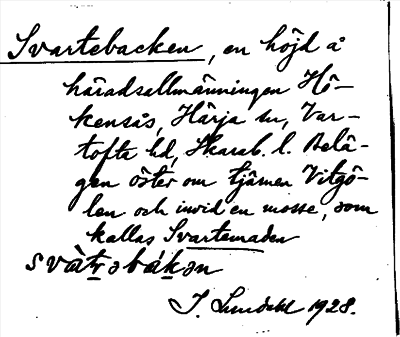 Svartebacken, en höjd å
häradsallmänningen Hö-
kensås, Härja sn, Var-
tofta hd, Skarab. l. Belä-
gen öster om tjärnen Vitgö-
len och invid en mosse, som
kallas Svartemaden
svàtəbákən
J. Lundahl 1928.